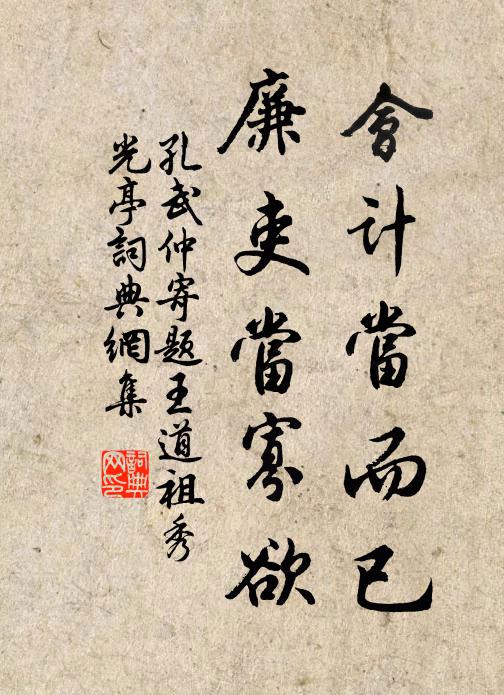 會计當而已
廉吏當寡欲
孔武仲寄题王道祖秀
光亭詞典網集
詞典
网印